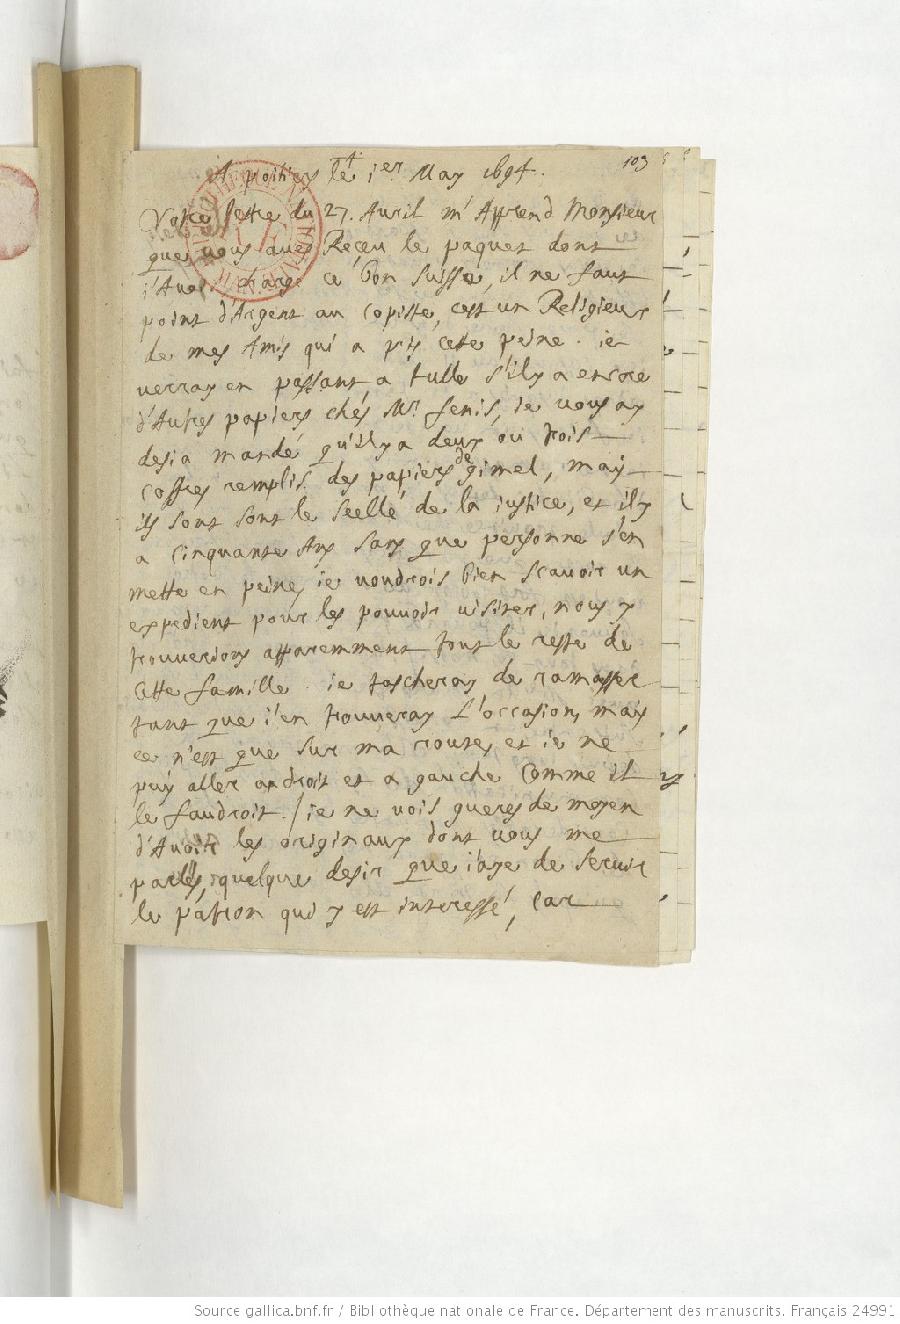 103
A poitiers le 1er May 1694.
Votre lettre du 27. Auril m'Apprend Monsieur
que vous aués Reçeu le paquet dont
i'Auois chargé ce bon suisse, il ne faut
point d'Argent au copiste, cest un Religieux
de mes Amis qui a pris cette peine. ie
verray en passant a tulle s'il y a encore
d'Autres papiers chés Mr. fenis, ie vous ay
desia mandé qu'il y a deux ou trois
coffres remplis des papiers de gimel, mais
ils sont sous le scellé de la iustice, et il y
a cinquante Ans sans que personne s'en
mette en peine, ie voudrois bien scauoir un
expedient pour les pouuoir uisiter, nous y
trouuerions apparemment tout le reste de
cette famille. ie tascheray de ramasser
tant que i'en trouueray L'occasion, mais
ce n'est que sur ma route, et ie ne
puis aller a droit et a gauche comme il
le faudroit. / ie ne vois gueres de moyen
d'Auoir les originaux dont vous me
parlés, quelque desir que i'aye de seruir
le patron qui y est interessé, car
Source gallica.bnf.fr / Bibliothèque nationale de France. Département des manuscrits. Français 24991